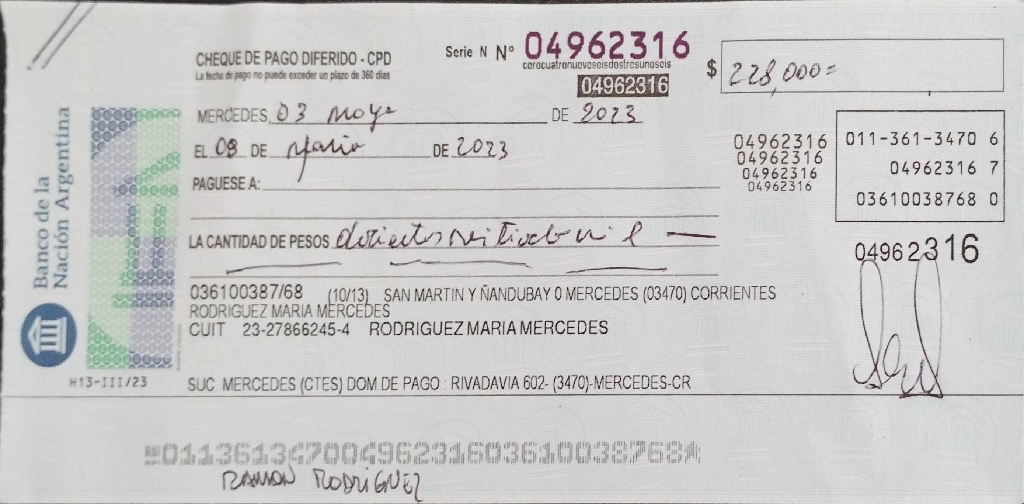 CHEQUE DE PAGO DIFERIDO - CPD
La fecha de pago no puede exceder un plazo de 360 dias
Serie N Nº 04962316
cerocuatronueveseisdostresunoseis
04962316
$ 228,000=
MERCEDES, 03 mayo DE 2023
EL 08 DE DE 2023
PAGUESE A:
LA CANTIDAD DE PESOS
04962316
04962316
04962316
04962316
011-361-3470 6
04962316 7
03610038768 0
04962316
036100387/68 (10/13) SAN MARTIN Y ÑANDUBAY 0 MERCEDES (03470) CORRIENTES
RODRIGUEZ MARIA MERCEDES
CUIT 23-27866245-4 RODRIGUEZ MARIA MERCEDES
SUC. MERCEDES (CTES) DOM DE PAGO : RIVADAVIA 602- (3470)-MERCEDES-CR
Banco de la
Nación Argentina
H13-III/23
01136134700496231603610038768
RAMON RODRIGUEZ